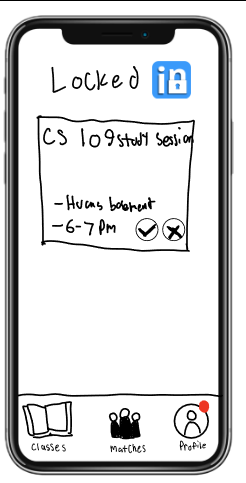 Locked in
CS 109 study session
- basement
- 6-7 pm
Classes
Matches
Profile